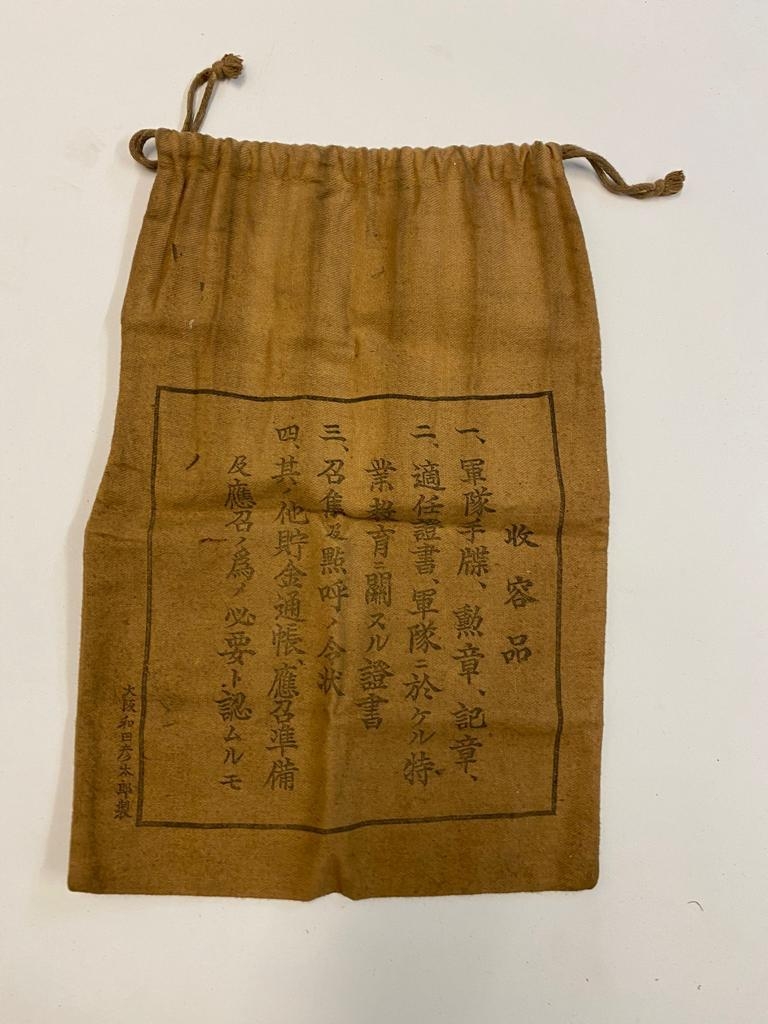 收容品
一、軍隊手牒、勲章、記章、
二、適任證書、軍隊ニ於ケル特
業教育ニ關スル證書
三、召集及點呼ノ令状
四、其ノ他貯金通帳、應召準備
及應召ノ爲メ必要ト認ムルモ
ノ
大阪和田彦太郎製